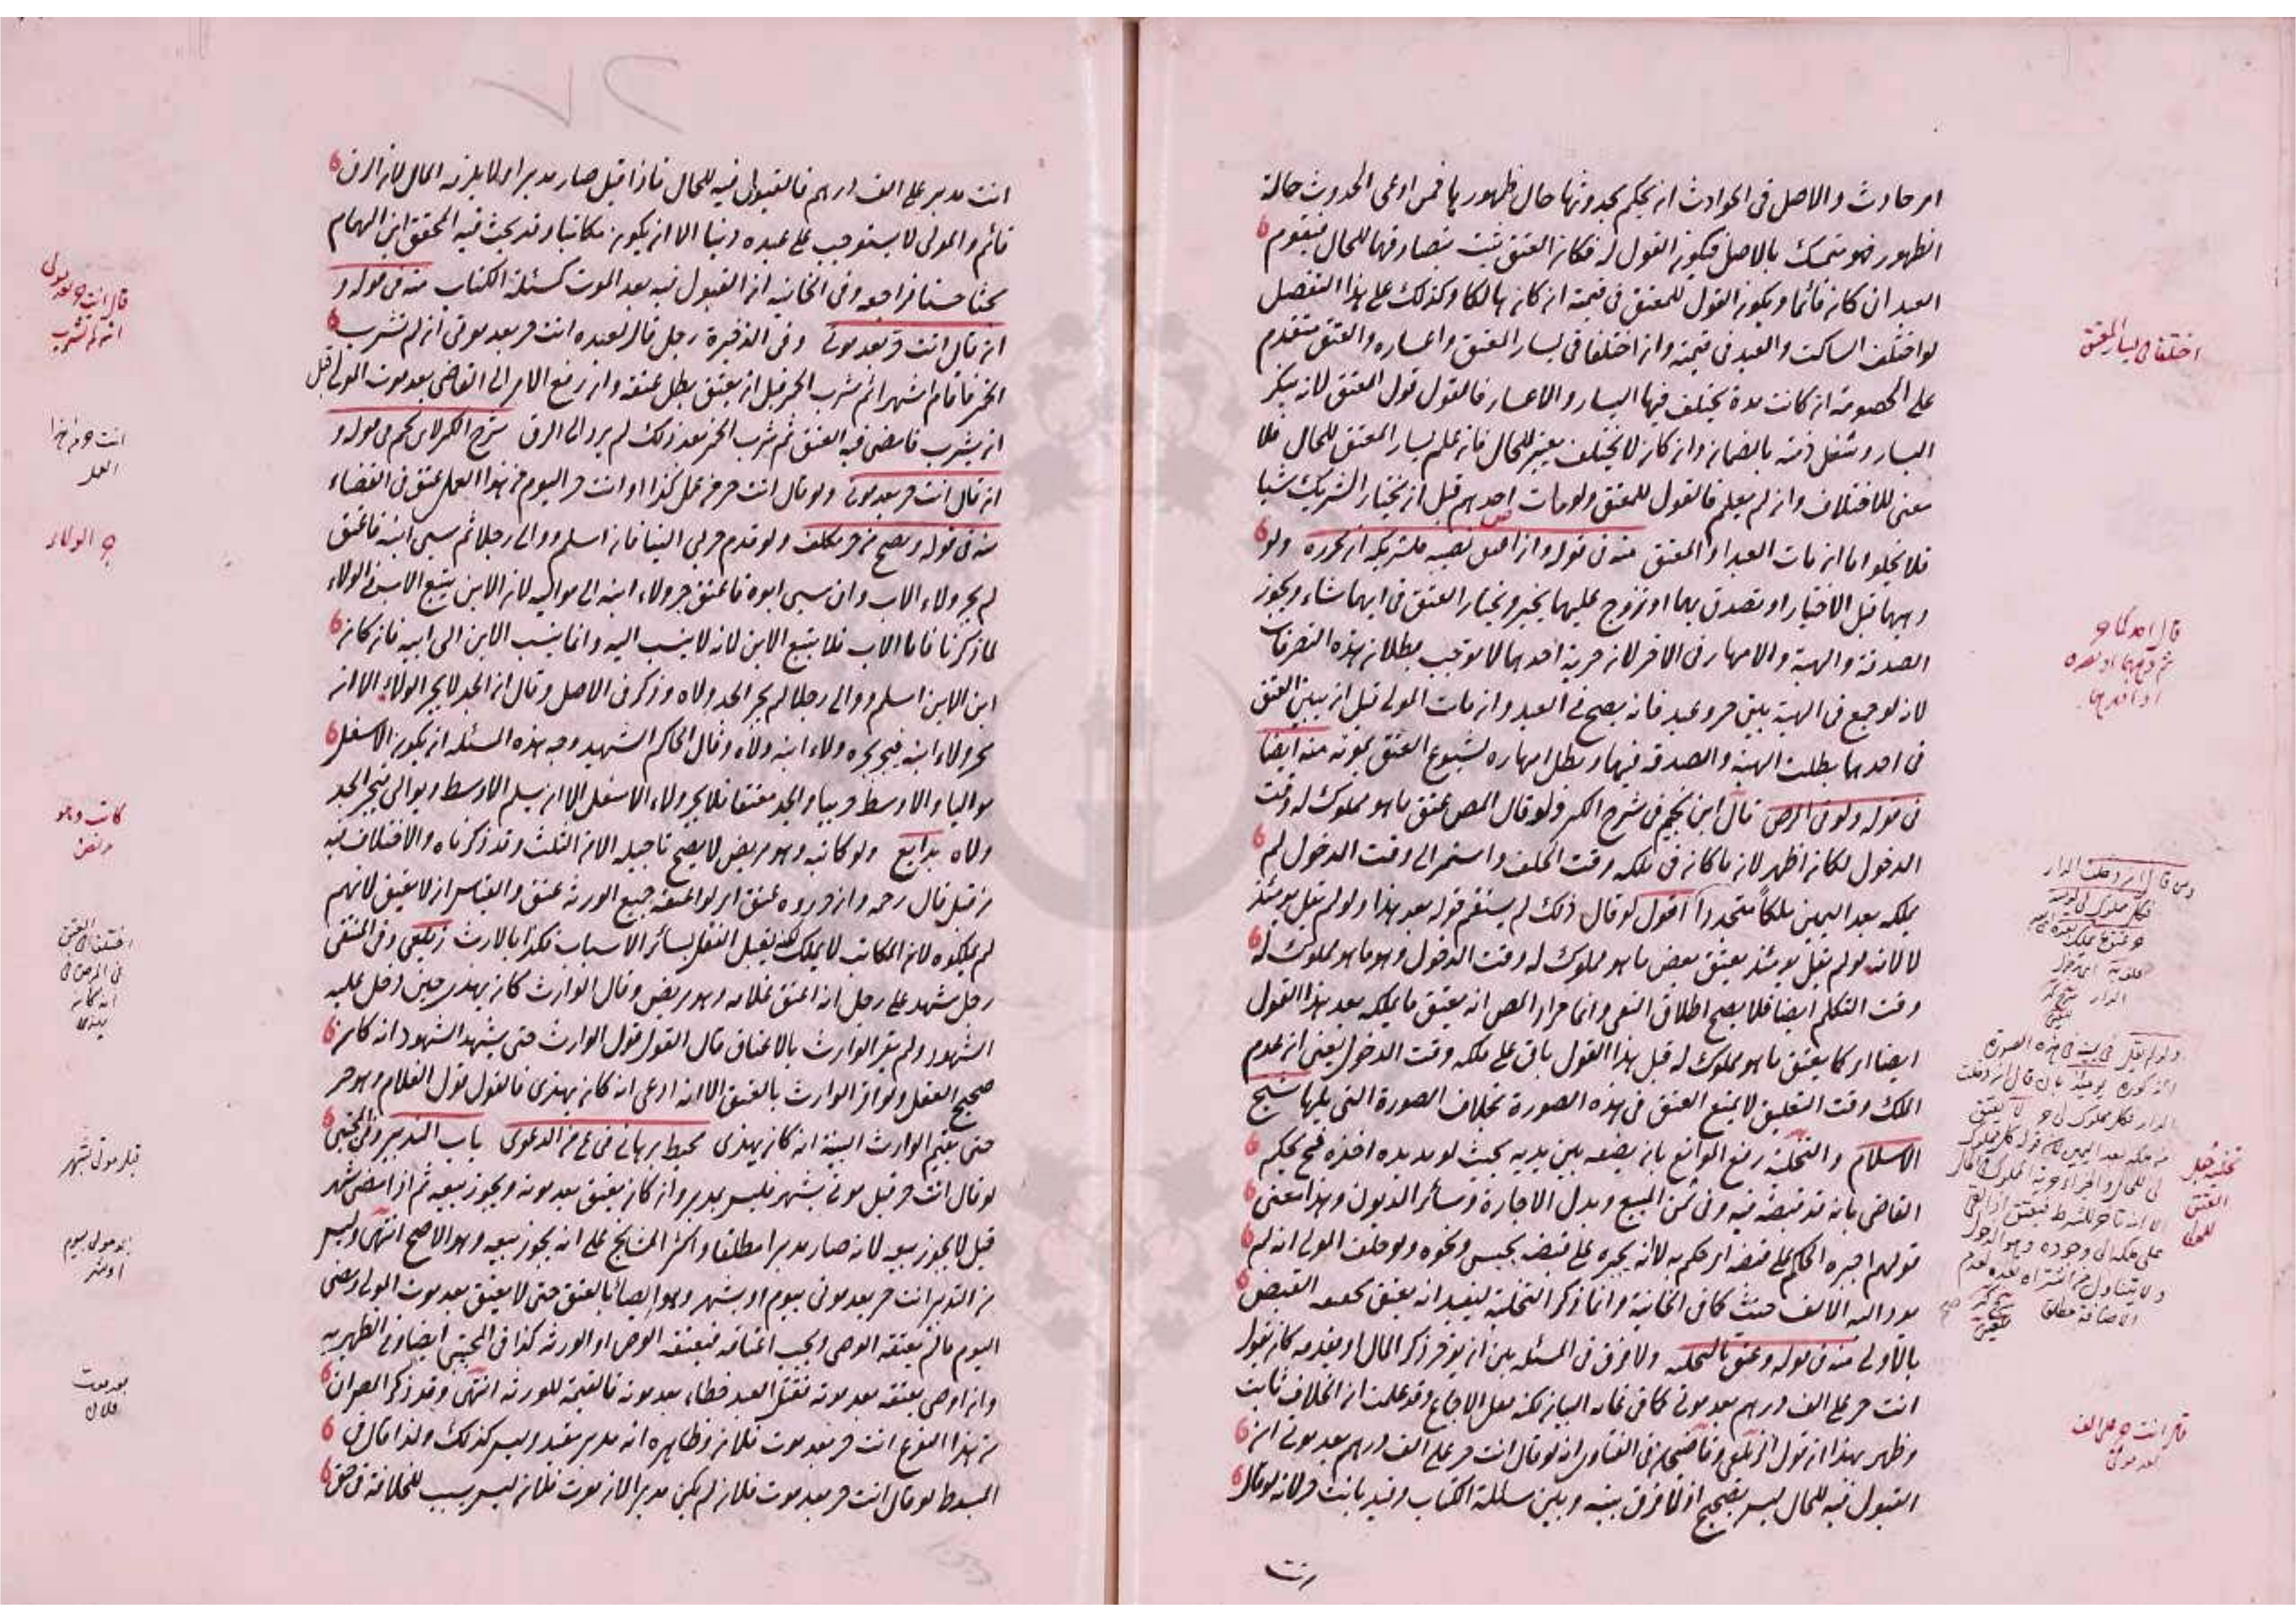 امر حادث والاصل فى الحوادث ان يحكم بحدوثها حال ظهورها فمن ادعى الحدوث حالة
الظهور فهو متمسك بالاصل فيكون القول له فكان العتق ثبت بتصادقهما للحال فيقوم
العبد ان كان قائما ويكون القول للمعتق فى قيمته ان كان هالكا وكذلك على هذا التفصيل
لو اختلف الساكت والعبد فى قيمته وان اختلفا فى يسار المعتق واعساره والعتق متقدم
على الخصومة ان كانت مدة يختلف فيها اليسار والاعسار فالقول قول المعتق لانه ينكر
اليسار وشغل ذمته بالضمان وان كان لا يختلف يعتبر للحال فان علم يسار المعتق للحال فلا
معنى للاختلاف وان لم يعلم فالقول للمعتق ولو مات احدهم قبل ان يختار الشريك شيا
فلا يخلو اما ان مات العبد او المعتق منه فى قوله وان اعتق نصيبه فلشريكه ان يحرره ولو
وهبهما قبل الاختيار او تصدق بهما او تزوج عليهما يخير ويختار العتق فى ايهما شاء ويجوز
الصدقة والهبة والامهار فى الاخر لان حرية احدهما لا توجب بطلان هذه التصرفات
لانه لو جمع فى الهبة بين حر وعبد فانه يصح فى العبد وان مات المولى قبل ان يبين العتق
فى احدهما بطلت الهبة والصدقة فيهما وبطل امهاره لشيوع العتق بموته منه ايضا
فى قوله ولو فى المرض قال ابن نجيم فى شرح الكنز ولو قال المص عتق ما هو مملوك له وقت
الدخول لكان اظهر لان ما كان فى ملكه وقت الحلف واستمر الى وقت الدخول لم
يملكه بعد اليمين ملكا متجددا اقول لو قال ذلك لم يستقم قوله بعد هذا ولو لم يقل يومئذ
لا لانه لو لم يقل يومئذ يعتق بعض ما هو مملوك له وقت الدخول وهو ما هو مملوك له
وقت التكلم ايضا فلا يصح اطلاق النفى وانما مراد المص انه يعتق ما يملكه بعد هذا القول
ايضا اى كما يعتق ما هو مملوك له قبل هذا القول باق على ملكه وقت الدخول يعنى ان عدم
الملك وقت التعليق لا يمنع العتق فى هذه الصورة بخلاف الصورة التى يليها شيخ
الاسلام والتخلية رفع الموانع بان يضعه بين يديه بحيث لو مد يده اخذه فح يحكم
القاضى بانه قد قبضه فيه وفى ثمن المبيع وبدل الاجارة وسائر الديون وهذا معنى
قولهم اجبره الحاكم على قبضه اى حكم به لا انه يجبره على قبضه بحبس ونحوه ولو حلف المولى انه لم
يود اليه الالف حنث كما فى الخانية وانما ذكر التخلية ليفيد انه يعتق بحقيقه القبض
بالاولى منه فى قوله وعتق بالتخليه ولا فرق فى المسئله بين ان يؤخر ذكر المال او يقدمه كان يقول
انت حر على الف درهم بعد موتى كما فى غاية البيان لكنه نقل الاجماع وقد علمت ان الخلاف ثابت
وظهر بهذا ان قول الزيلعى وقاضيخان فى الفتاوى انه لو قال انت حر على الف درهم بعد موتى ان
القبول فيه للحال ليس بصحيح اذ لا فرق بينه وبين مسئلة الكتاب وقيد بانت حر لانه لو قال
اختلفا فى يسار المعتق
قال احدكما حر
العتق
قال انت حر على الف
بعد موتى
انت مدبر على الف درهم فالقبول فيه للحال فاذا قبل صار مدبرا ولا يلزمه المال لان الرق
قائم والمولى لا يستوجب على عبده دينا الا ان يكون مكاتبا وقد بحث فيه المحقق ابن الهمام
بحثا حسنا فراجعه وفى الخانيه ان القبول فيه بعد الموت كمسئلة الكتاب منه فى قوله و
ان قال انت حر بعد موتى وفى الذخيرة رجل قال لعبده انت حر بعد موتى ان لم تشرب
الخمر فاقام اشهرا ثم شرب الخمر قبل ان يعتق بطل عتقه وان رفع الامر الى القاضى بعد موت المولى قبل
ان يشرب فامضى فيه العتق ثم شرب الخمر بعد ذلك لم يرد الى الرق شرح الكنز لابن نجيم فى قوله و
ان قال انت حر بعد موتى ولو قال انت حر من عمل كذا او انت حر اليوم من هذا العمل عتق فى القضاء
منه فى قوله ويصح من حر مكلف ولو قدم حربى الينا فانه اسلم ووالى رجلا ثم سبى ابنه فاعتق
لم يجر ولاء الاب وان سبى ابوه فاعتق جر ولاء ابنه الى مواليه لان الابن يتبع الاب فى الولاء
لما ذكرنا فاما الاب فلا يتبع الابن لانه لا ينسب اليه وانما ينسب الابن الى ابيه فان كان
ابن الابن اسلم ووالى رجلا لم يجر الجد ولاه وذكر فى الاصل وقال ان الجد لا يجر الولاء الا انه
يجر ولاء ابنه فيجر بجره ولاء ابنه ولاه وقال الحاكم الشهيد وجه هذه المسئله ان يكون الاسفل
مواليا والاوسط حربيا والجد معتقا فلا يجر ولاء الاسفل الا ان يسلم الاوسط ويوالى فيجر الجد
ولاه بدايع ولو كاتبه وهو مريض لا يصح تاجيله الا من الثلث وقد ذكرناه والاختلاف فيه
من قبل قال رحمه وان حرروه عتق اى لو اعتقه جميع الورثه عتق والقياس ان لا يعتق لانهم
لم يملكوه لان المكاتب لا يملك لكنه يقبل النقل بسائر الاسباب فكذا بالارث زيلعى وفى المنتقى
رجل شهد على رجل انه اعتق غلامه وهو مريض وقال الوارث كان يهذى حين دخل عليه
الشهود ولم يقر الوارث بالاعتاق قال القول قول الوارث حتى يشهد الشهود انه كان
صحيح العقل ولو اقر الوارث بالعتق الا انه ادعى انه كان يهذى فالقول قول الغلام وهو حر
حتى يقيم الوارث البينة انه كان يهذى محيط برهانى من الدعوى باب التدبير وفى المجتبى
لو قال انت حر قبل موتى بشهر فليس بمدبر وان كان يعتق بعد موته ويجوز بيعه ثم اذا مضى شهر
قيل لا يجوز بيعه لانه صار مدبرا مطلقا واكثر المشايخ على انه يجوز بيعه وهو الاصح انتهى وليس
من التدبير انت حر بعد موتى بيوم او بشهر وهو ايصا بالعتق حتى لا يعتق بعد موت المولى ومضى
اليوم ما لم يعتقه الوصى ويجب اعتاقه فيعتقه الوصى او الورثه كذا فى المجتبى ايضا وفى الظهيريه
وان اوصى بعتقه بعد موته فقتل العبد خطاء بعد موته فالقيمة للورثه انتهى وقد ذكر المص ان
من هذا النوع انت حر بعد موت فلان وظاهره انه مدبر مقيد وليس كذلك ولذا قال فى
المبسوط لو قال انت حر بعد موت فلان لم يكن مدبرا لان موت فلان ليس بسبب للخلافة فى حق
قال انت حر بعد موتى
ان لم تشرب
انت حر من هذا
العمل
جر الولاء
كاتبه وهو
مريض
قبل موتى بشهر
بعد موتى بيوم
او بشهر
بعد موت
فلان